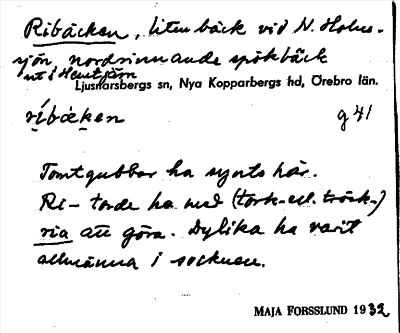 Ribäcken, liten bäck vid N. Holm-
sjön, nordrinnande spökbäck
ut i Hemtjärn
Ljusnarsbergs sn, Nya Kopparbergs hd, Örebro län.
ríbäken g 41
Tomtgubbar ha synts här.
Ri- torde ha med (tork- ell. trösk-)
ria att göra. Dylika ha varit
allmänna i socknen.
MAJA FORSSLUND 1932